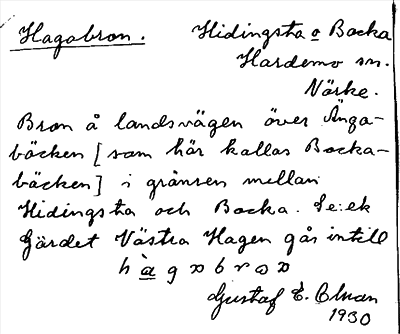 Hagabron. Hidingsta o Backa
Hardemo sn.
Närke.
Bron å landsvägen över Änga-
bäcken [som här kallas Backa-
bäcken] i gränsen mellan
Hidingsta och Backa. Se: ek
Gärdet Västra Hagen går intill
Gustaf E.
1930